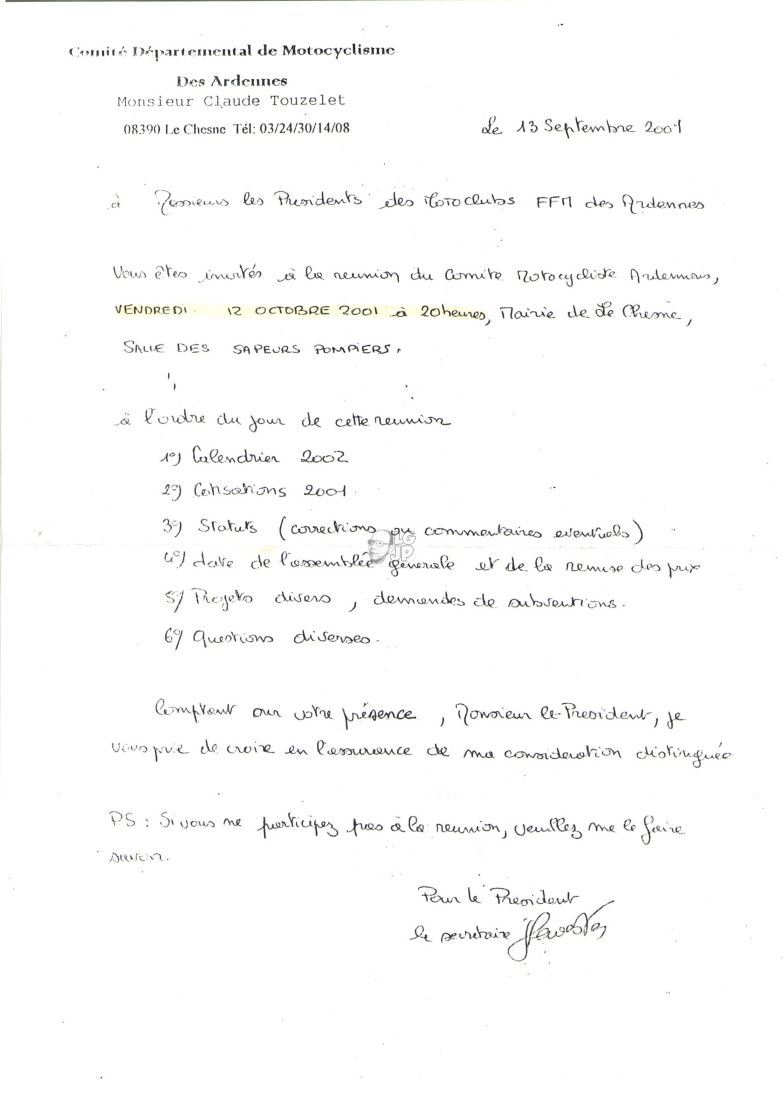 Comité Départemental de Motocyclisme
Des Ardennes
Monsieur Claude Touzelet
08390 Le Chesne Tél: 03/24/30/14/08
Le 13 Septembre 2001
à Messieurs les Presidents des Motoclubs FFM des Ardennes
Vous êtes invités à la reunion du Comite Motocycliste Ardennais,
VENDREDI 12 OCTOBRE 2001 à 20heures, Mairie de Le Chesne,
SALLE DES SAPEURS POMPIERS.
à l'ordre du jour de cette reunion
1°) Calendrier 2002
2°) Cotisations 2001
3°) Statuts (corrections ou commentaires eventuels)
LG
JP
4°) date de l'assemblée générale et de la remise des prix
5°) Projets divers, demandes de subventions.
6°) Questions diverses.
Comptant sur votre présence, Monsieur le President, je
vous prie de croire en l'assurance de ma consideration distinguée
PS : Si vous ne participez pas à la reunion, veuillez me le faire
savoir.
Pour le President
le secretaire